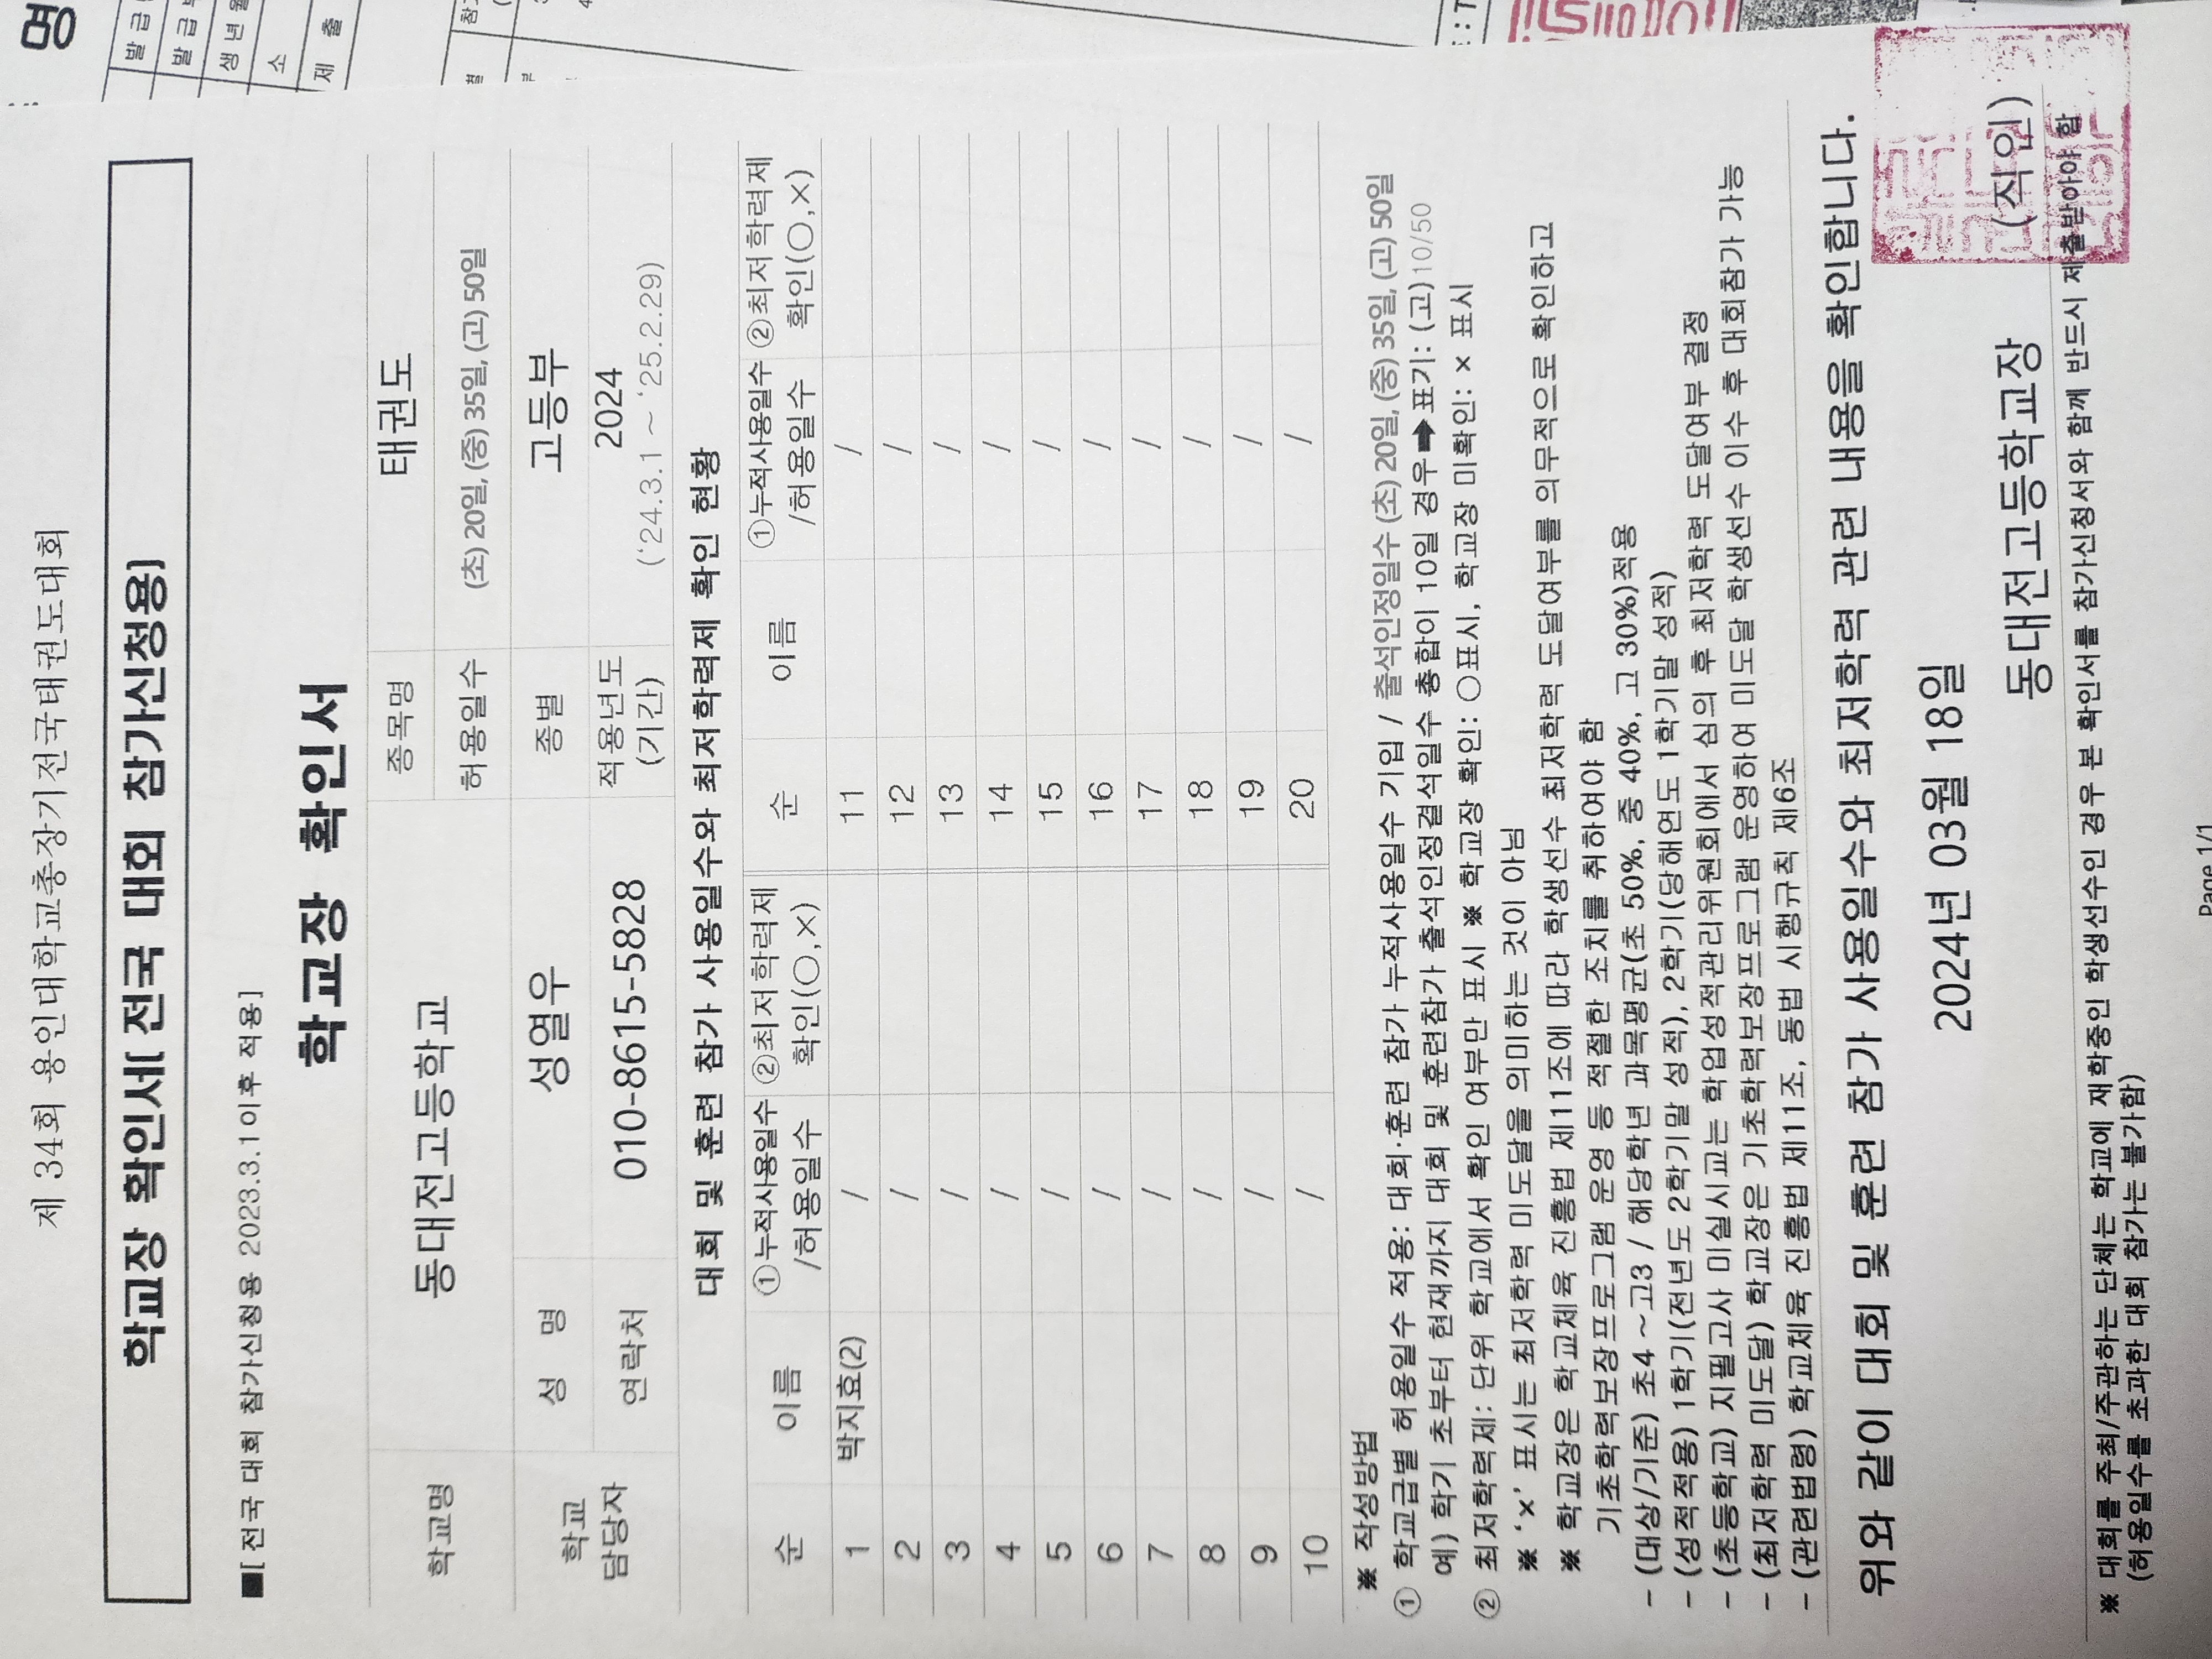 제 34회 용인대학교총장기전국태권도대회
학교장 확인서[ 전국 대회 참가신청용]
■[ 전국 대회 참가신청용 2023.3.1이후 적용]
학교장 확인서
학교명 동대전고등학교 종목명 태권도
허용일수 (초) 20일, (중) 35일, (고) 50일
학교 담당자 성 명 성열우 종별 고등부
연락처 010-8615-5828 적용년도 (기간) 2024
('24.3.1 ~ '25.2.29)
대회 및 훈련 참가 사용일수와 최저학력제 확인 현황
순 이름 ①누적사용일수 /허용일수 ②최저학력제 확인(○,×) 순 이름 ①누적사용일수 /허용일수 ②최저학력제 확인(○,×)
1 박지효(2) / 11 /
2 / 12 /
3 / 13 /
4 / 14 /
5 / 15 /
6 / 16 /
7 / 17 /
8 / 18 /
9 / 19 /
10 / 20 /
※ 작성방법
① 학교급별 허용일수 적용: 대회·훈련 참가 누적사용일수 기입 / 출석인정일수 (초) 20일, (중) 35일, (고) 50일
예) 학기 초부터 현재까지 대회 및 훈련참가 출석인정결석일수 총합이 10일 경우➡표기: (고)10/50
② 최저학력제: 단위 학교에서 확인 여부만 표시 ※ 학교장 확인: ○표시, 학교장 미확인: × 표시
※ 'x' 표시는 최저학력 미도달을 의미하는 것이 아님
※ 학교장은 학교체육 진흥법 제11조에 따라 학생선수 최저학력 도달여부를 의무적으로 확인하고
기초학력보장프로그램 운영 등 적절한 조치를 취하여야 함
- (대상/기준) 초4 ~고3 / 해당학년 과목평균(초 50%, 중 40%, 고 30%)적용
- (성적적용) 1학기(전년도 2학기말 성적), 2학기(당해연도 1학기말 성적)
- (초등학교) 지필고사 미실시교는 학업성적관리위원회에서 심의 후 최저학력 도달여부 결정
- (최저학력 미도달) 학교장은 기초학력보장프로그램 운영하여 미도달 학생선수 이수 후 대회참가 가능
- (관련법령) 학교체육 진흥법 제11조, 동법 시행규칙 제6조
위와 같이 대회 및 훈련 참가 사용일수와 최저학력 관련 내용을 확인합니다.
2024년 03월 18일
동대전고등학교장 (직인)
※ 대회를 주최/주관하는 단체는 학교에 재학중인 학생선수인 경우 본 확인서를 참가신청서와 함께 반드시 제출받아야 함
(허용일수를 초과한 대회 참가는 불가함)
Page 1/1
명
발급
발급
생년월
소
제 출